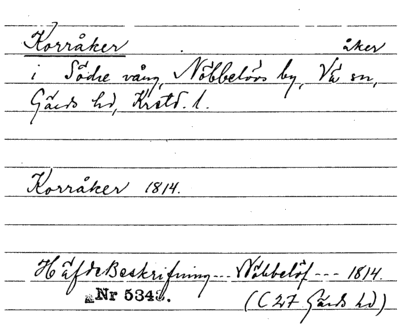 Korråker åker
i Södre vång, Nöbbelövs by, Vä sn,
Gärds hd, Krstd. l.
Korråker 1814.
HäfdeBeskrifning --- Nöbbelöf --- 1814.
Nr 5343. (C 27 Gärds hd)